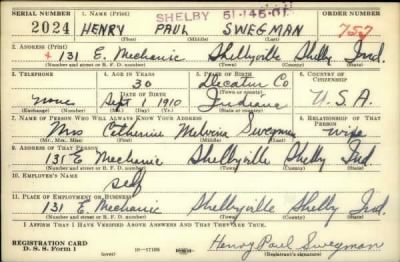 SERIAL NUMBER 1. NAME (Print) SHELBY 51-145-01
2024 HENRY PAUL SWEGMAN
(First) (Middle) (Last)
2. ADDRESS (Print)
131 E. Mechanic Shelbyville Shelby Ind.
(Number and street or R. F. D. number) (Town) (County) (State)
3. TELEPHONE 4. AGE IN YEARS 5. PLACE OF BIRTH 6. COUNTRY OF CITIZENSHIP
30 Decatur Co
DATE OF BIRTH (Town or county)
none Sept 1 1910 Indiana U.S.A.
(Exchange) (No.) (Mo.) (Day) (Yr.) (State or country)
7. NAME OF PERSON WHO WILL ALWAYS KNOW YOUR ADDRESS 8. RELATIONSHIP OF THAT PERSON
Mrs Catherine Melvina Swegman wife
(Mr., Mrs., Miss) (First) (Middle) (Last)
9. ADDRESS OF THAT PERSON
131 E Mechanic Shelbyville Shelby Ind
(Number and street or R. F. D. number) (Town) (County) (State)
10. EMPLOYER'S NAME
self
11. PLACE OF EMPLOYMENT OR BUSINESS
131 E. Mechanic Shelbyville Shelby Ind.
(Number and street or R. F. D. number) (Town) (County) (State)
I AFFIRM THAT I HAVE VERIFIED ABOVE ANSWERS AND THAT THEY ARE TRUE.
REGISTRATION CARD
D. S. S. Form 1 (over) Henry Paul Swegman
(Registrant's signature)